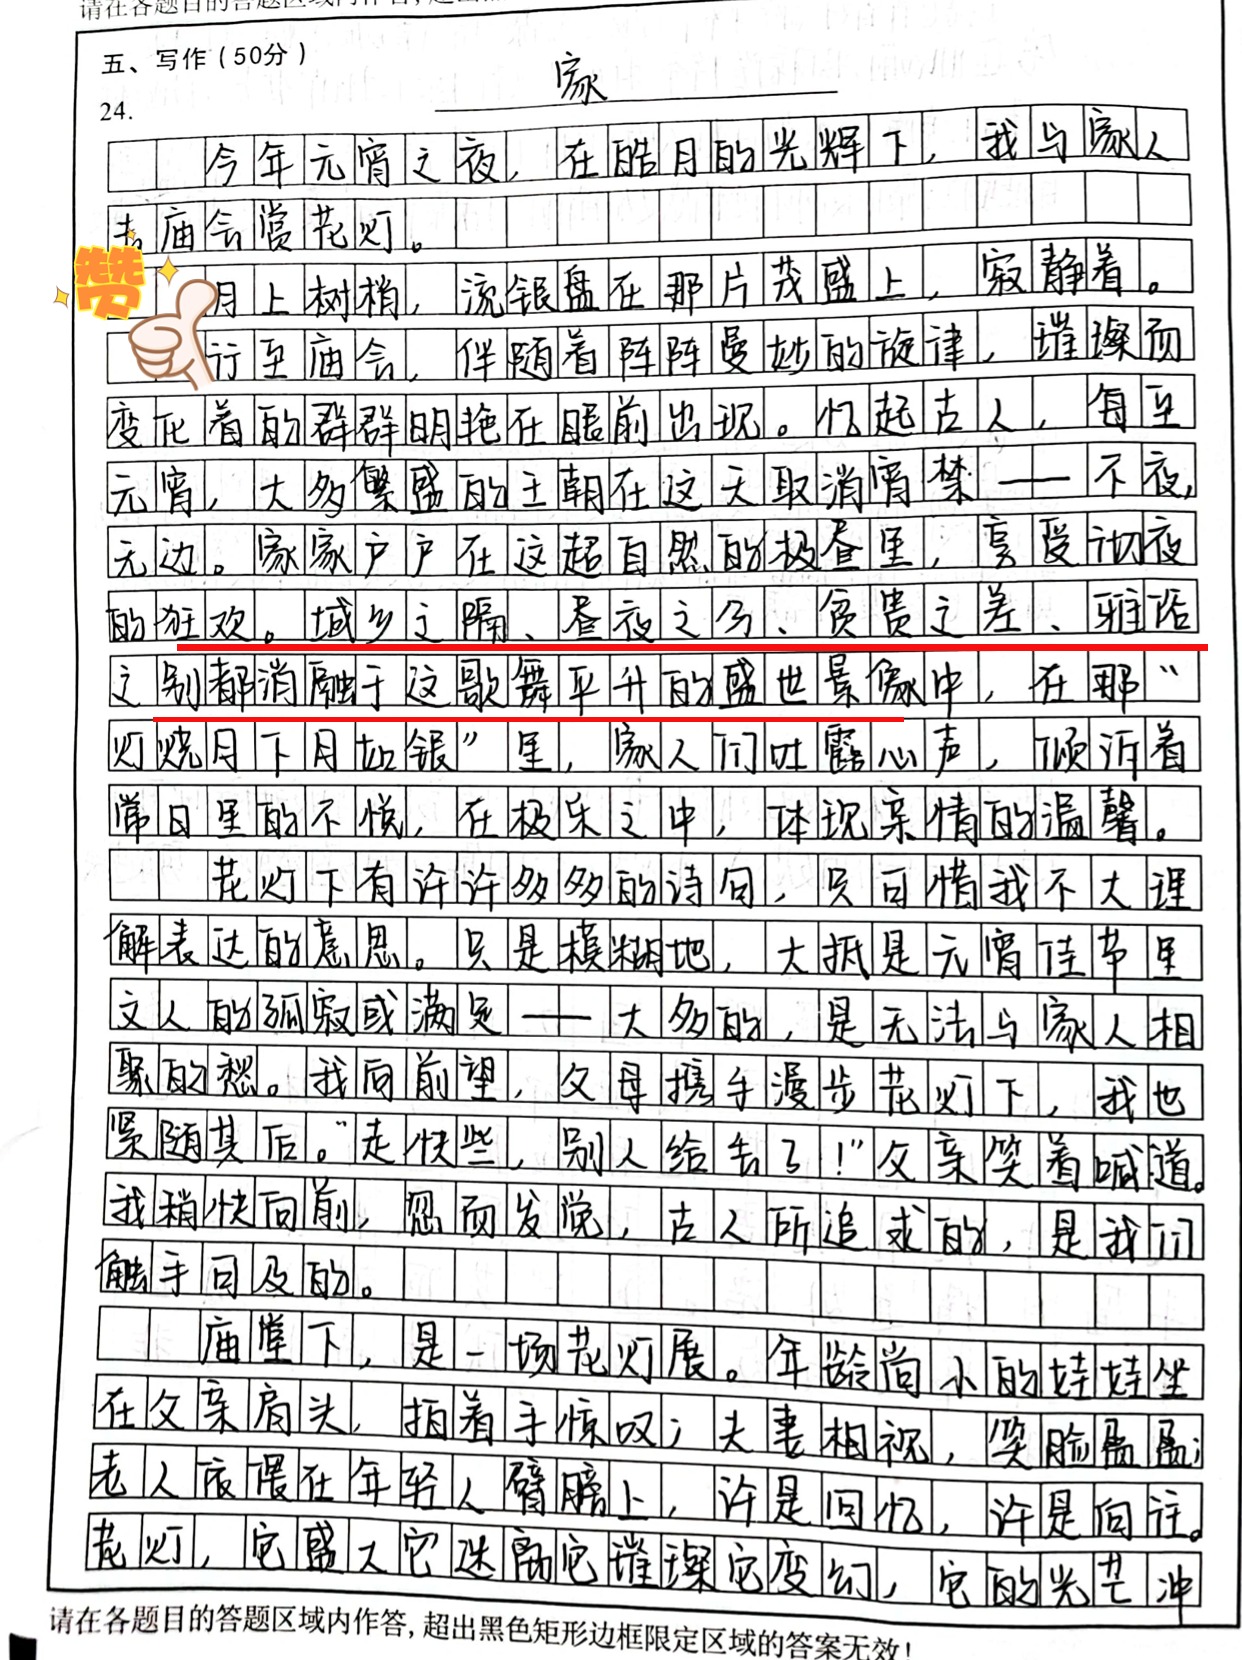 五、写作（50分）
24.
家
今年元宵之夜，在皓月的光辉下，我与家人
去庙会赏花灯。
赞
月上树梢，流银盘在那片茂盛上，寂静着。
行至庙会，伴随着阵阵曼妙的旋律，璀璨而
变化着的群群明艳在眼前出现。忆起古人，每至
元宵，大多繁盛的王朝在这天取消宵禁——不夜，
无边。家家户户在这超自然的极昼里，享受彻夜
的狂欢。城乡之隔、昼夜之分、贫贵之差、雅俗
之别都消融于这歌舞平升的盛世景像中，在那“
灯烧月下月如银”里，家人们吐露心声，倾诉着
常日里的不悦，在极乐之中，体现亲情的温馨。
花灯下有许许多多的诗句，只可惜我不大理
解表达的意思。只是模糊地，大抵是元宵佳节里
文人的孤寂或满足——大多的，是无法与家人相
聚的愁。我向前望，父母携手漫步花灯下，我也
紧随其后。“走快些，别人给丢了！”父亲笑着喊道。
我稍快向前，忽而发觉，古人所追求的，是我们
触手可及的。
庙堂下，是一场花灯展。年龄尚小的娃娃坐
在父亲肩头，拍着手惊叹；夫妻相视，笑脸盈盈；
老人依偎在年轻人臂膀上，许是回忆，许是向往。
花灯，它盛大它迷离它璀璨它变幻，它的光芒冲
请在各题目的答题区域内作答，超出黑色矩形边框限定区域的答案无效！